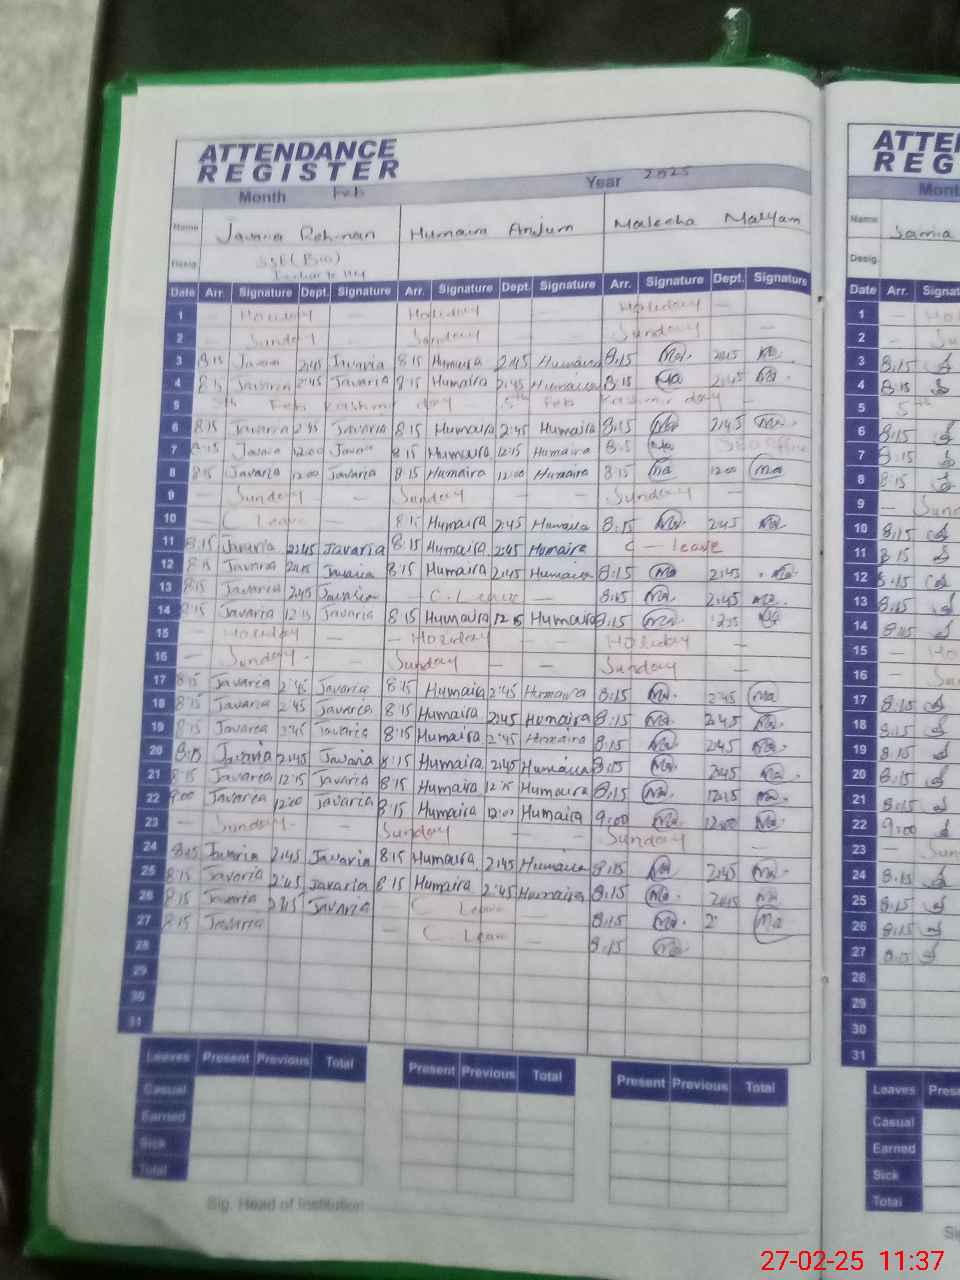 ATTENDANCE
REGISTER
Month Feb Year 2025
Name Javaria Rehman Humaira Anjum Maleeha Maryam
Desig. SST(Bio)
Date Arr. Signature Dept. Signature Arr. Signature Dept. Signature Arr. Signature Dept. Signature
1 - Holiday - - Holiday - - Holiday -
2 - Sunday - - Sunday - - Sunday -
3 8:15 Javaria 2:45 Javaria 8:15 Humaira 2:45 Humaira 8:15 Ma 2:45 Ma
4 8:15 Javaria 2:45 Javaria 8:15 Humaira 2:45 Humaira 8:15 Ma 2:45 Ma
5 5th Feb Kashmir day 5th Feb Kashmir day -
6 8:15 Javaria 2:45 Javaria 8:15 Humaira 2:45 Humaira 8:15 Ma 2:45 Ma
7 8:15 Javaria 12:00 Javaria 8:15 Humaira 12:15 Humaira 8:15 Ma office
8 8:15 Javaria 12:00 Javaria 8:15 Humaira 12:00 Humaira 8:15 Ma 12:00 Ma
9 - Sunday - Sunday - - Sunday -
10 - C Leave - 8:15 Humaira 2:45 Humaira 8:15 Ma 2:45 Ma
11 8:15 Javaria 2:45 Javaria 8:15 Humaira 2:45 Humaira C - leave
12 8:15 Javaria 2:45 Javaria 8:15 Humaira 2:45 Humaira 8:15 Ma 2:45 Ma
13 8:15 Javaria 2:45 Javaria - C. Leave - 8:15 Ma 2:45 Ma
14 8:15 Javaria 12:15 Javaria 8:15 Humaira 12:15 Humaira 8:15 Ma
15 - Holiday - - Holiday - - Holiday -
16 - Sunday - - Sunday - - Sunday -
17 8:15 Javaria 2:45 Javaria 8:15 Humaira 2:45 Humaira 8:15 Ma 2:45 Ma
18 8:15 Javaria 2:45 Javaria 8:15 Humaira 2:45 Humaira 8:15 Ma 2:45 Ma
19 8:15 Javaria 2:45 Javaria 8:15 Humaira 2:45 Humaira 8:15 Ma 2:45 Ma
20 8:15 Javaria 2:45 Javaria 8:15 Humaira 2:45 Humaira 8:15 Ma 2:45 Ma
21 8:15 Javaria 12:15 Javaria 8:15 Humaira 12:15 Humaira 8:15 Ma 12:15 Ma
22 9:00 Javaria 12:00 Javaria 8:15 Humaira 12:00 Humaira 9:00 Ma 12:00 Ma
23 - Sunday - - Sunday - - Sunday -
24 8:15 Javaria 2:45 Javaria 8:15 Humaira 2:45 Humaira 8:15 Ma 2:45 Ma
25 8:15 Javaria 2:45 Javaria 8:15 Humaira 2:45 Humaira 8:15 Ma 2:45 Ma
26 8:15 Javaria 2:45 Javaria C Leave - 8:15 Ma 2 Ma
27 8:15 Javaria - C. Leave - 8:15 Ma
28
29
30
31
Leaves Present Previous Total Present Previous Total Present Previous Total
Casual
Earned
Sick
Total
Sig. Head of Institution
ATTE
REG
Mont
Name Samia
Desig.
Date Arr. Signat
1 - Hol
2 - Su
3 8:15
4 8:15
5 5th
6 8:15
7 8:15
8 8:15
9 - Sund
10 8:15
11 8:15
12 8:15
13 8:15
14 8:15
15 - Ho
16 - Su
17 8:15
18 8:15
19 8:15
20 8:15
21 8:15
22 9:00
23 - Sun
24 8:15
25 8:15
26 8:15
27 8:15
28
29
30
31
Leaves Prese
Casual
Earned
Sick
Total
27-02-25 11:37